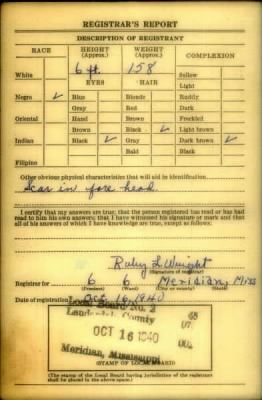 REGISTRAR'S REPORT
DESCRIPTION OF REGISTRANT
RACE HEIGHT (Approx.) WEIGHT (Approx.) COMPLEXION
White 6 ft 158 Sallow
EYES HAIR Light
Negro ✓ Blue Blonde Ruddy
Gray Red Dark
Oriental Hazel Brown Freckled
Brown Black ✓ Light brown
Indian Black ✓ Gray Dark brown ✓
Bald Black
Filipino
Other obvious physical characteristics that will aid in identification
Scar in fore head.
I certify that my answers are true; that the person registered has read or has had
read to him his own answers; that I have witnessed his signature or mark and that
all of his answers of which I have knowledge are true, except as follows:
Ruby L. Wright
(Signature of registrar)
Registrar for 6 6 Meridian, Miss
(Precinct) (Ward) (City or county) (State)
Date of registration Oct 16, 1940
Local Board No. 2
Lauderdale County
OCT 16 1940
Meridian, Mississippi
(STAMP OF LOCAL BOARD)
(The stamp of the Local Board having jurisdiction of the registrant
shall be placed in the above space.)